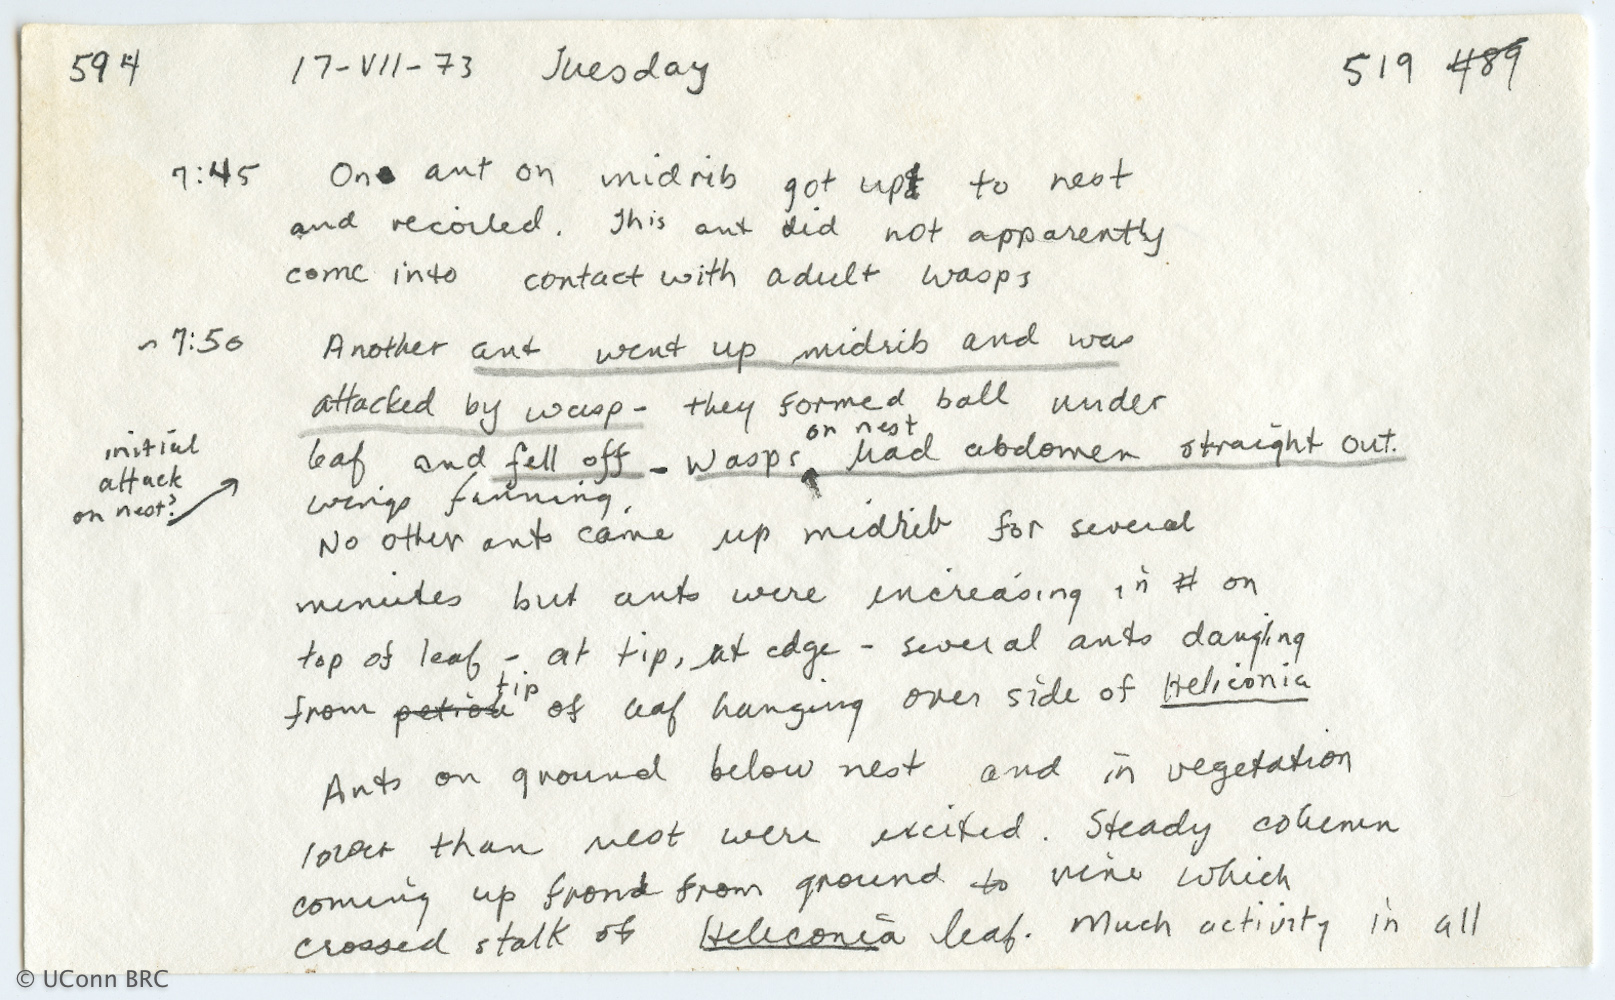 594 17-VII-73 Tuesday 519 #89
7:45 One ant on midrib got up to nest
and recoiled. This ant did not apparently
come into contact with adult wasps
~7:50 Another ant went up midrib and was
attacked by wasp - they formed ball under
on nest
leaf and fell off - wasps had abdomen straight out.
initial
attack
on nest?
wings fanning.
No other ants came up midrib for several
minutes but ants were increasing in # on
top of leaf - at tip, at edge - several ants dangling
tip
from petiole of leaf hanging over side of Heliconia
Ants on ground below nest and in vegetation
lower than nest were excited. Steady column
coming up frond from ground to vine which
crossed stalk of Heliconia leaf. Much activity in all
© UConn BRC